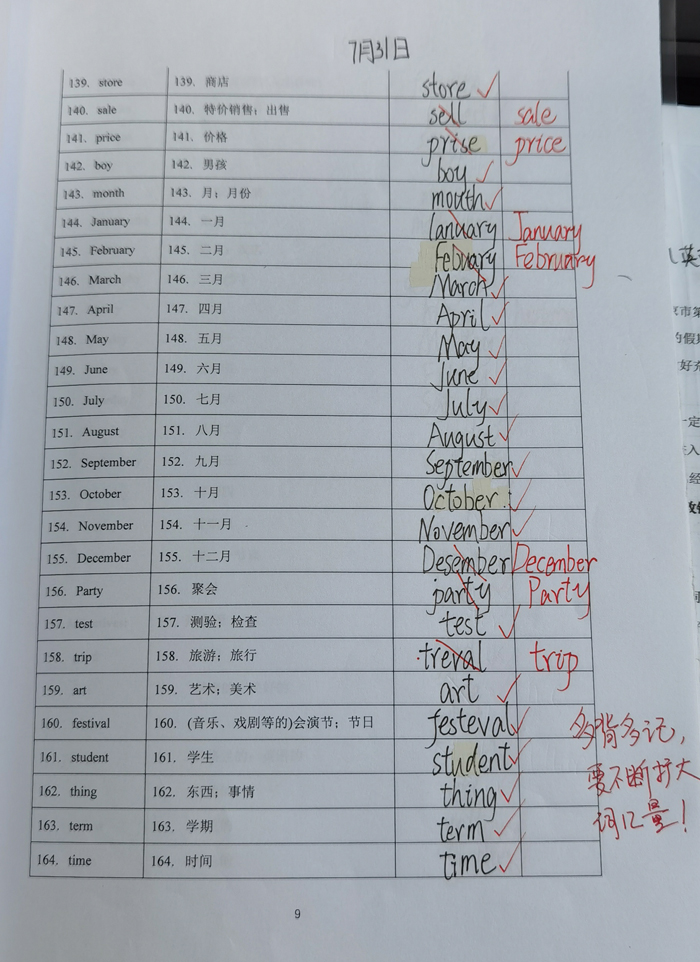 7月31日
139. store 139. 商店 store
140. sale 140. 特价销售；出售 sell sale
141. price 141. 价格 prise price
142. boy 142. 男孩 boy
143. month 143. 月；月份 mouth
144. January 144. 一月 lanuary January
145. February 145. 二月 Febuary February
146. March 146. 三月 March
147. April 147. 四月 April
148. May 148. 五月 May
149. June 149. 六月 June
150. July 150. 七月 July
151. August 151. 八月 August
152. September 152. 九月 September
153. October 153. 十月 October
154. November 154. 十一月 November
155. December 155. 十二月 Desember December
156. Party 156. 聚会 party Party
157. test 157. 测验；检查 test
158. trip 158. 旅游；旅行 treval trip
159. art 159. 艺术；美术 art
160. festival 160. (音乐、戏剧等的)会演节；节日 festeval
161. student 161. 学生 student
162. thing 162. 东西；事情 thing
163. term 163. 学期 term
164. time 164. 时间 time
多背多记，
要不断扩大
词汇量！
9